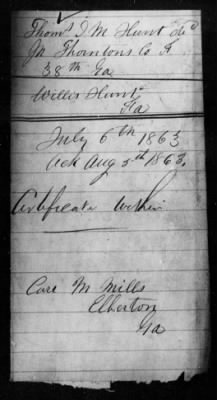 Thoms J. M. Hunt Decd
Jn Thorntons Co. F
38th Ga
Willis Hunt
Fa
July 6th 1863
Ack Aug 5th 1863.
Certificate within
Care M Mills
Elberton
Ga